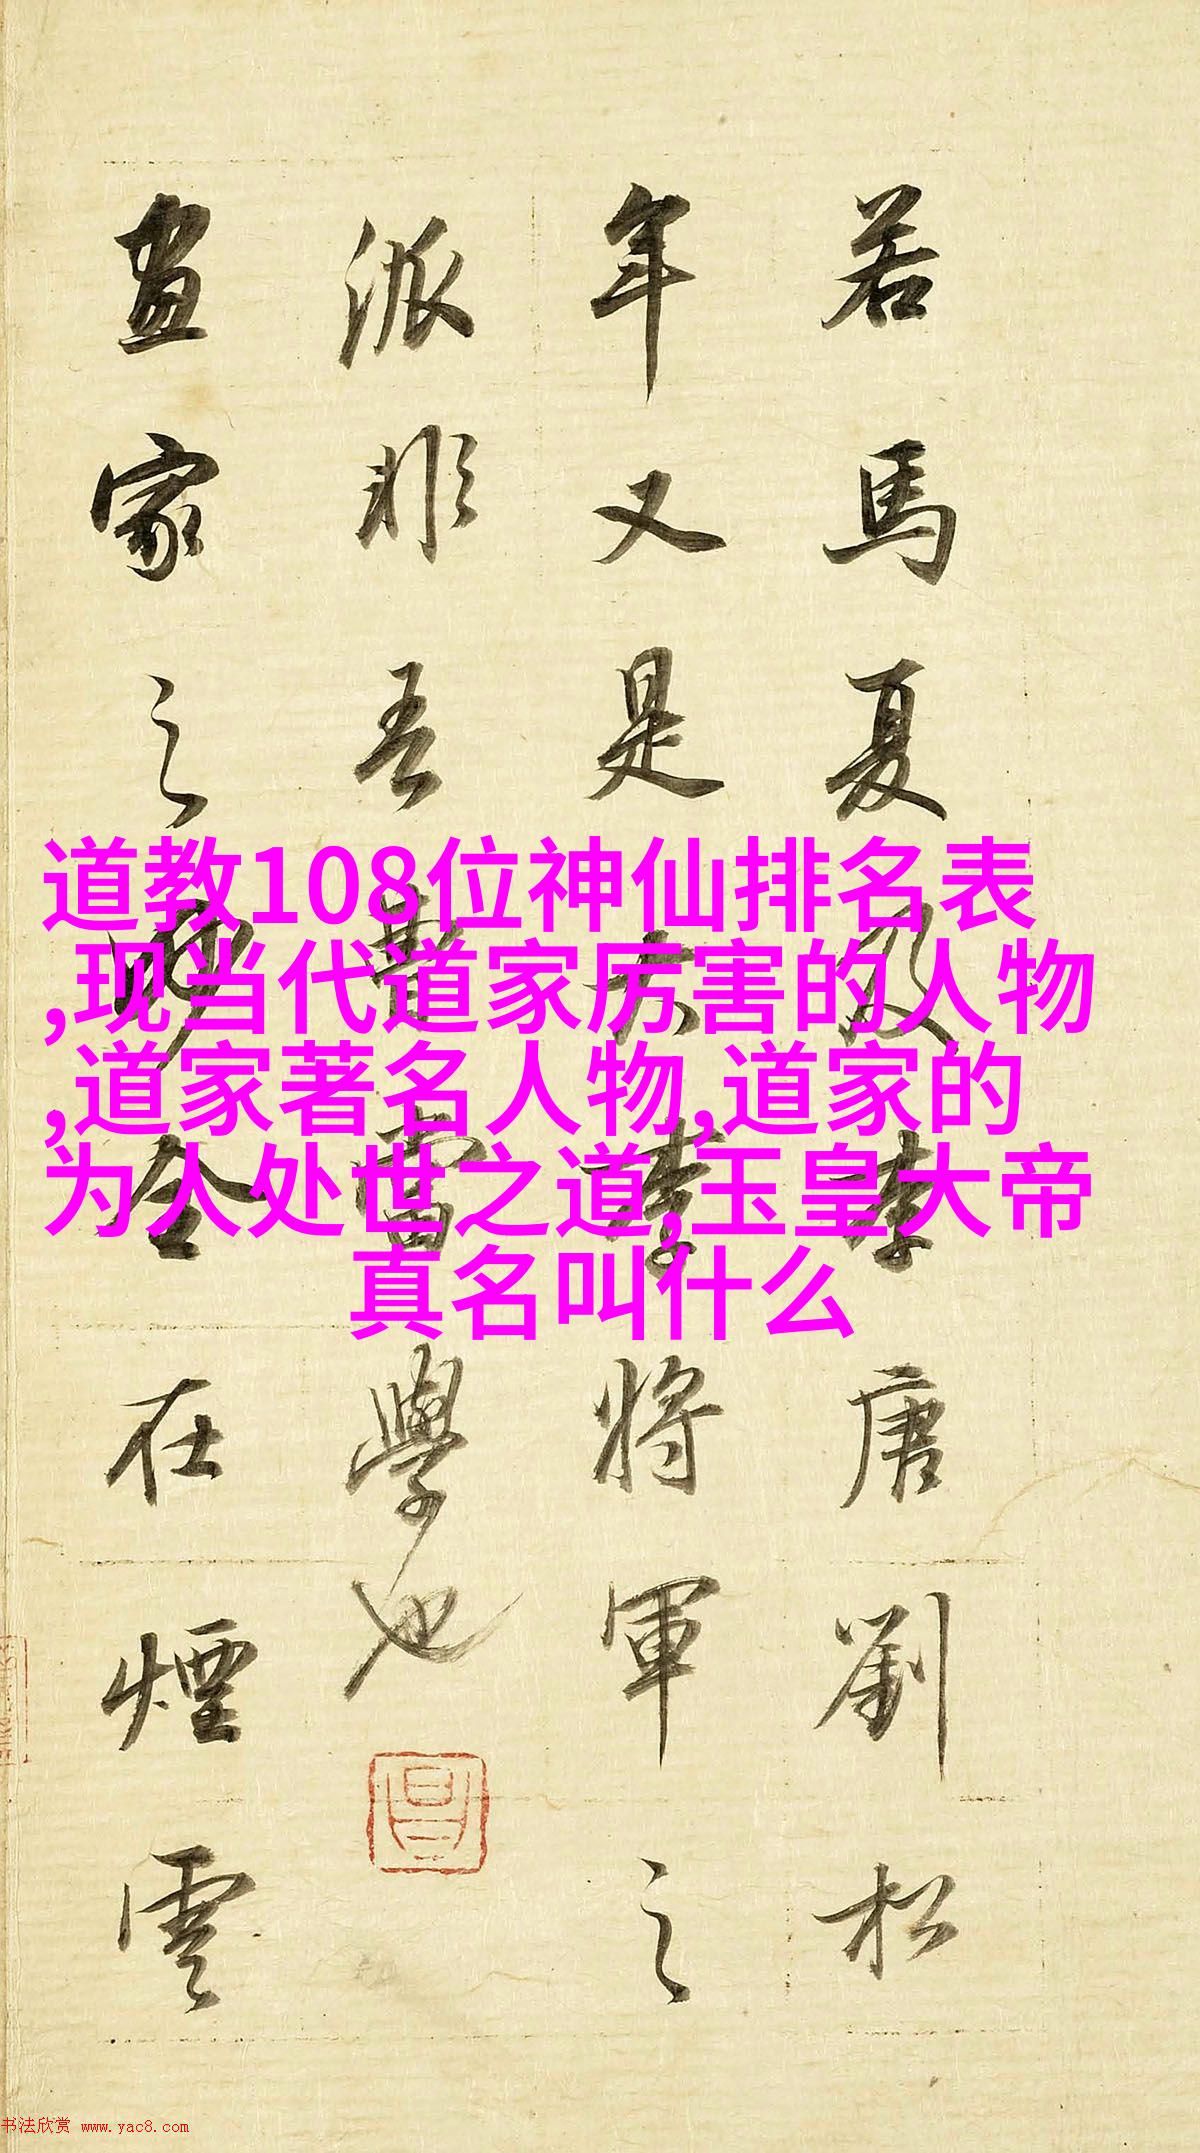 若馬夏及李唐劉松
年又是大李將軍之
派非吾曹當學也
畫家之妙全在煙雲
道教108位神仙排名表
,现当代道家厉害的人物
,道家著名人物,道家的
为人处世之道,玉皇大帝
真名叫什么
书法欣赏 www.yac8.com